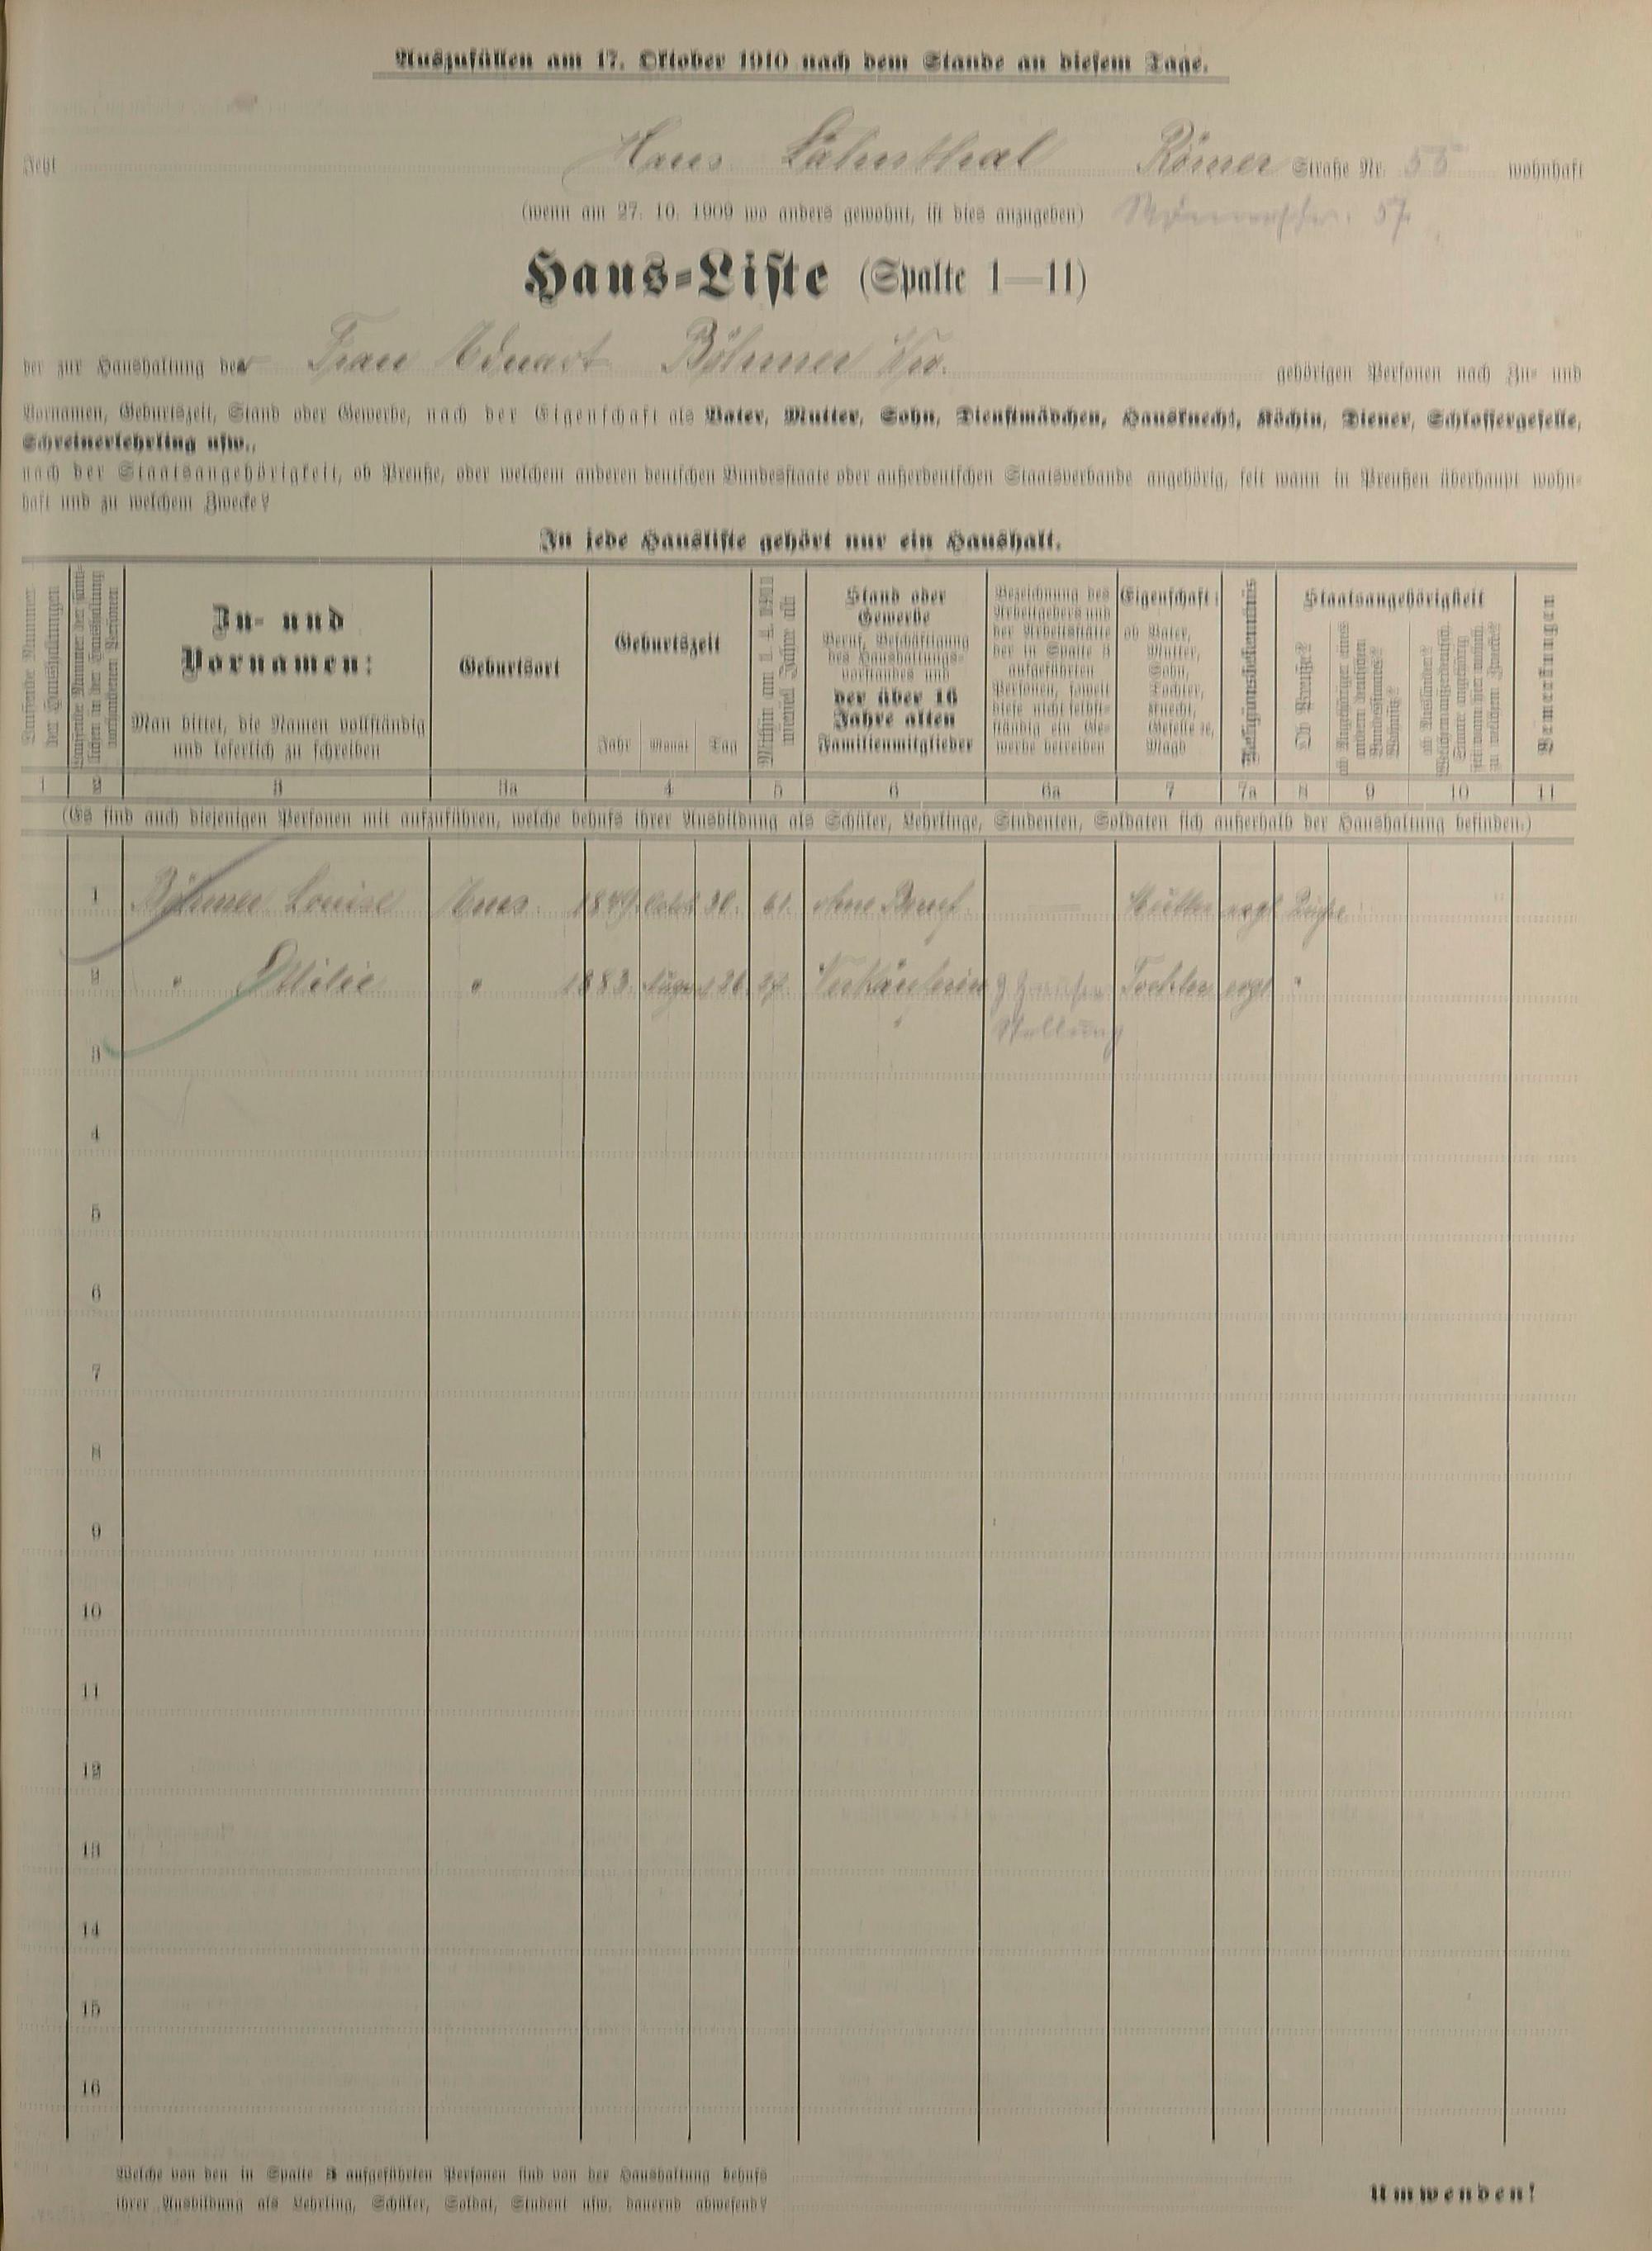 Auszufüllen am 17. Oktober 1910 nach dem Stande an diesem Tage.
Jetzt Haus Lahnthal Römer Straße Nr. 55 wohnhaft
(wenn am 27. 10. 1909 wo anders gewohnt, ist dies anzugeben) 57.
Haus-Liste (Spalte 1—11)
der zur Haushaltung der Frau Eduart Böhmer Ww. gehörigen Personen nach Zu- und
Vornamen, Geburtszeit, Stand oder Gewerbe, nach der Eigenschaft als Vater, Mutter, Sohn, Dienstmädchen, Hausknecht, Köchin, Diener, Schlossergeselle,
Schreinerlehrling usw.,
nach der Staatsangehörigkeit, ob Preuße, oder welchem anderen deutschen Bundesstaate oder außerdeutschen Staatsverbande angehörig, seit wann in Preußen überhaupt wohn-
haft und zu welchem Zwecke?
In jede Hausliste gehört nur ein Haushalt.
Laufende Nummer
der Haushaltungen
Laufende Nummer der sämt-
lichen in der Haushaltung
vorhandenen Personen
Zu- und
Vornamen:
Man bittet, die Namen vollständig
und leserlich zu schreiben
Geburtsort
Geburtszeit
Jahr Monat Tag
Mithin am 1. 4. 1911
wieviel Jahre alt
Stand oder
Gewerbe
Beruf, Beschäftigung
des Haushaltungs-
vorstandes und
der über 16
Jahre alten
Familienmitglieder
Bezeichnung des
Arbeitgebers und
der Arbeitsstätte
der in Spalte 6
aufgeführten
Personen, soweit
diese nicht selbst-
ständig ein Ge-
werbe betreiben
Eigenschaft:
ob Vater,
Mutter,
Sohn,
Tochter,
Knecht,
Geselle ꝛc.
Magd
Religionsbekenntnis
Staatsangehörigkeit
Ob Preuße?
ob Angehöriger eines
andern deutschen
Bundesstaates?
ob Ausländer?
Welchem außerdeutsch.
Staate angehörig
seit wann hier wohnh.
zu welchem Zwecke?
Bemerkungen
1 2 3 3a 4 5 6 6a 7 7a 8 9 10 11
(Es sind auch diejenigen Personen mit aufzuführen, welche behufs ihrer Ausbildung als Schüler, Lehrlinge, Studenten, Soldaten sich außerhalb der Haushaltung befinden.)
1 Böhmer Louise Ems. 1849. Octob 30. 61. ohne Beruf. — Mutter evgl
2 " Ottilie " 1883. August 26. 27. Verkäuferin Tochter evgl "
Stellung
3
4
5
6
7
8
9
10
11
12
13
14
15
16
Welche von den in Spalte 3 aufgeführten Personen sind von der Haushaltung behufs
ihrer Ausbildung als Lehrling, Schüler, Soldat, Student usw. dauernd abwesend?
Umwenden!